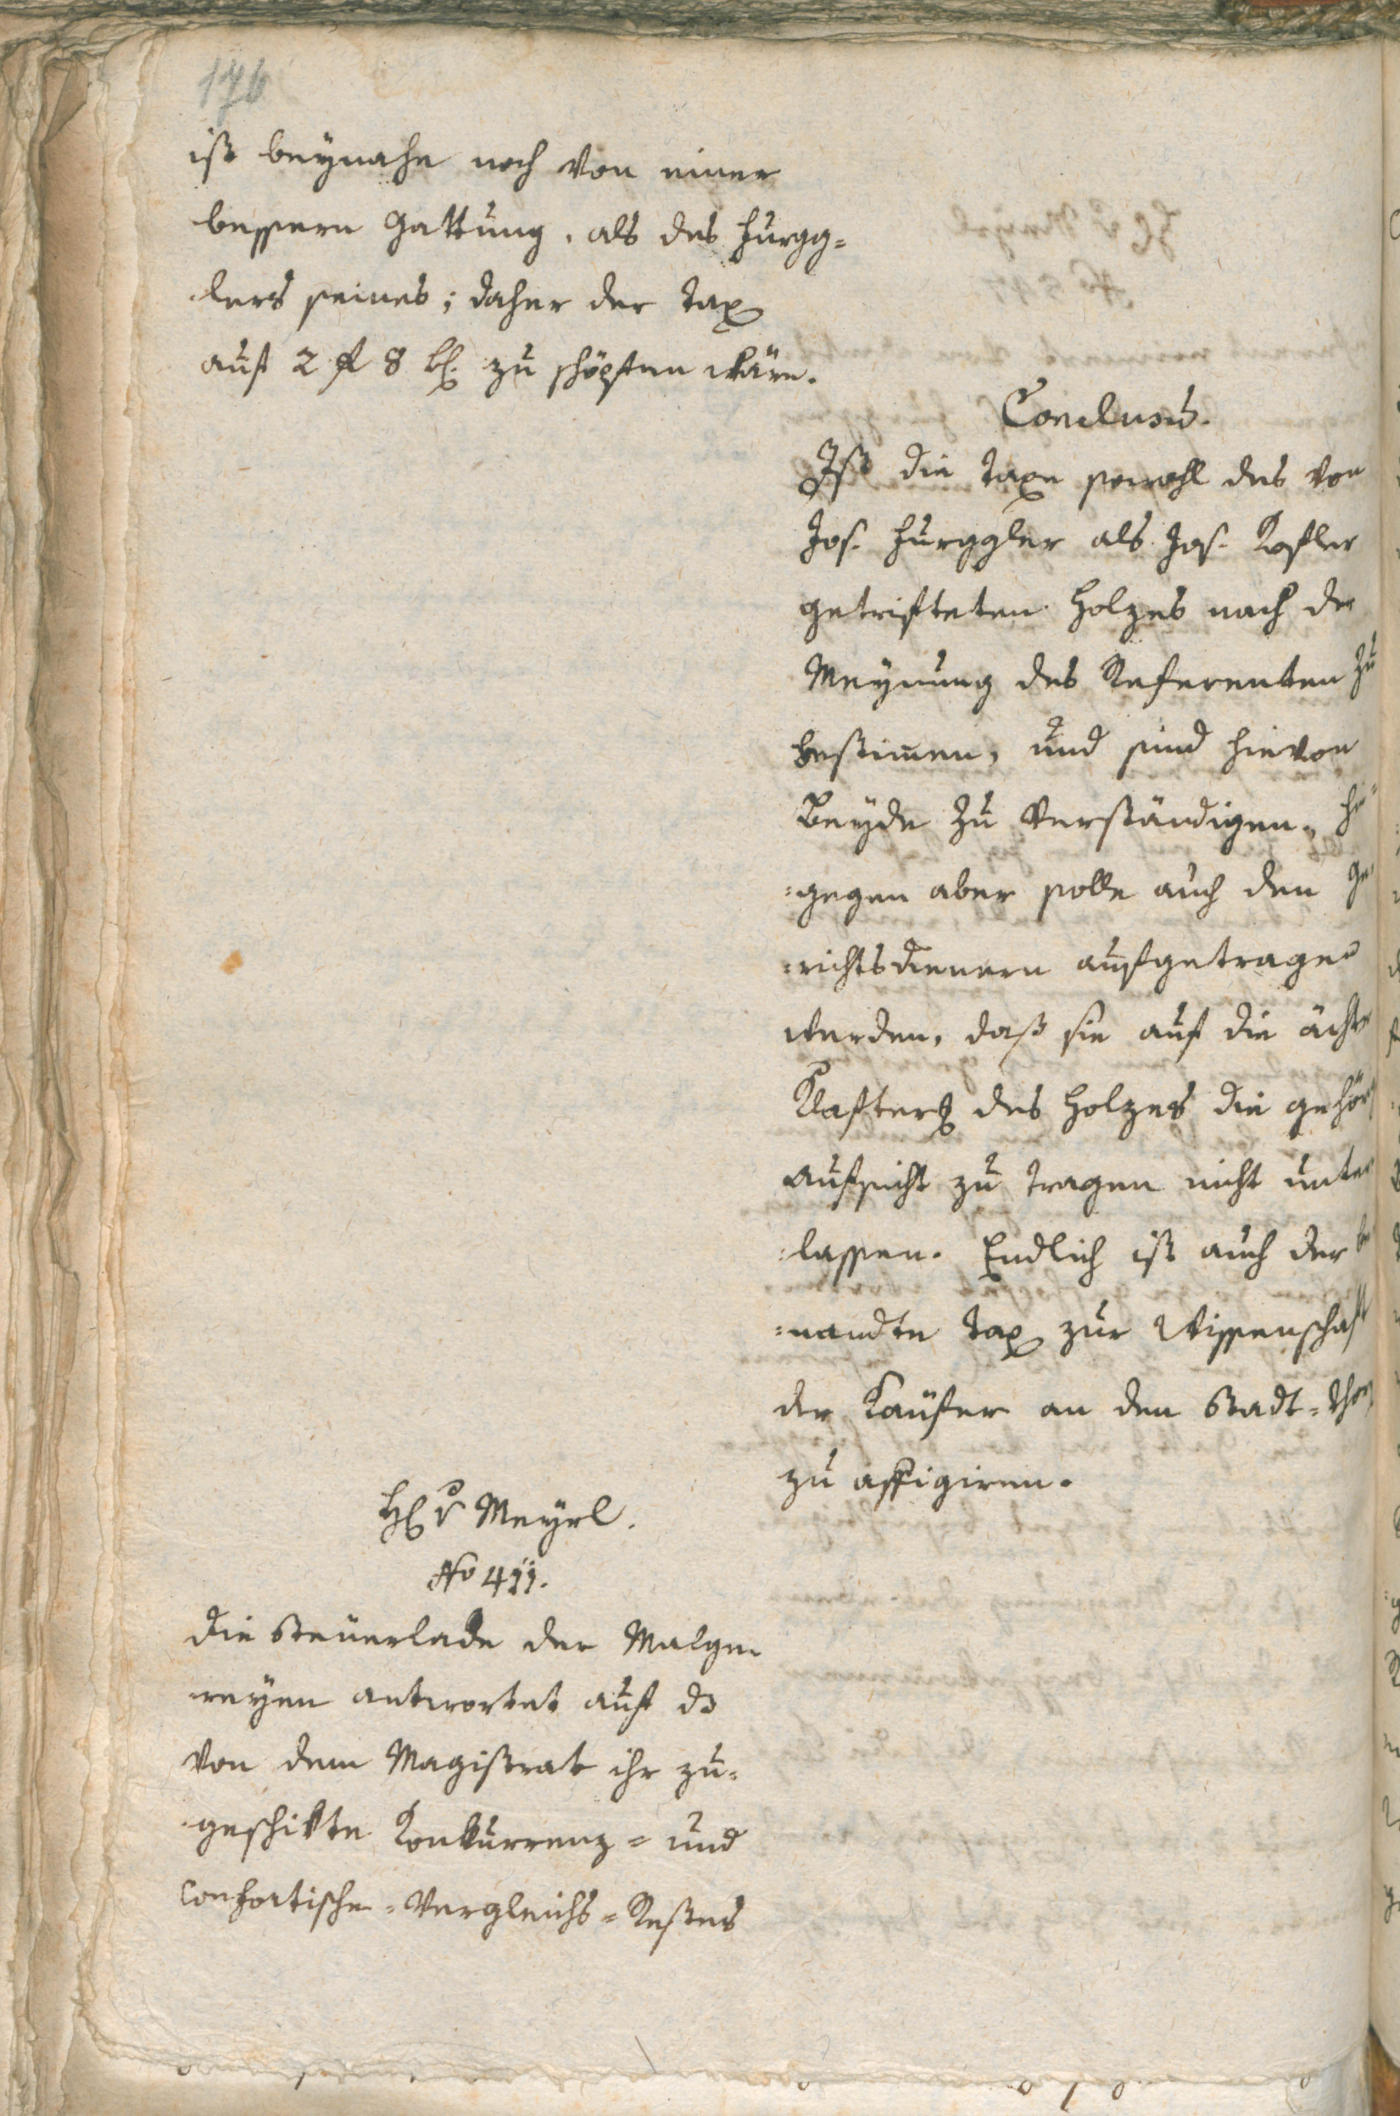 176
ist beynahe noch von einer
bessern Gattung, als des Hurgg=
lers seines; daher der Tax
auf 2 f 8 kr. zu schöpfen wäre.
Conclusum.
Ist die Taxe sowohl des von
Jos. Hurggler als Jos. Kofler
getrifteten Holzes nach der
Meynung des Referenten zu
bestimen, und sind hievon
Beyde zu verständigen. hin=
=gegen aber solle auch den Ge=
=richtsdienern aufgetragen
werden, daß sie auf die ächte
Klafter des Holzes die gehörige
aufsicht zu tragen nicht unter
=lassen. Endlich ist auch der be
=nandte Tax zur Wissenschaft
der Käufer an den Stadt=thor
zu affigiren.
H v Meyrl.
No 411.
Die Steuerlade der Malgre
reyen antwortet auf das
von dem Magistrat ihr zu=
geschikte Konkurrenz= und
Vergleichs=Restes